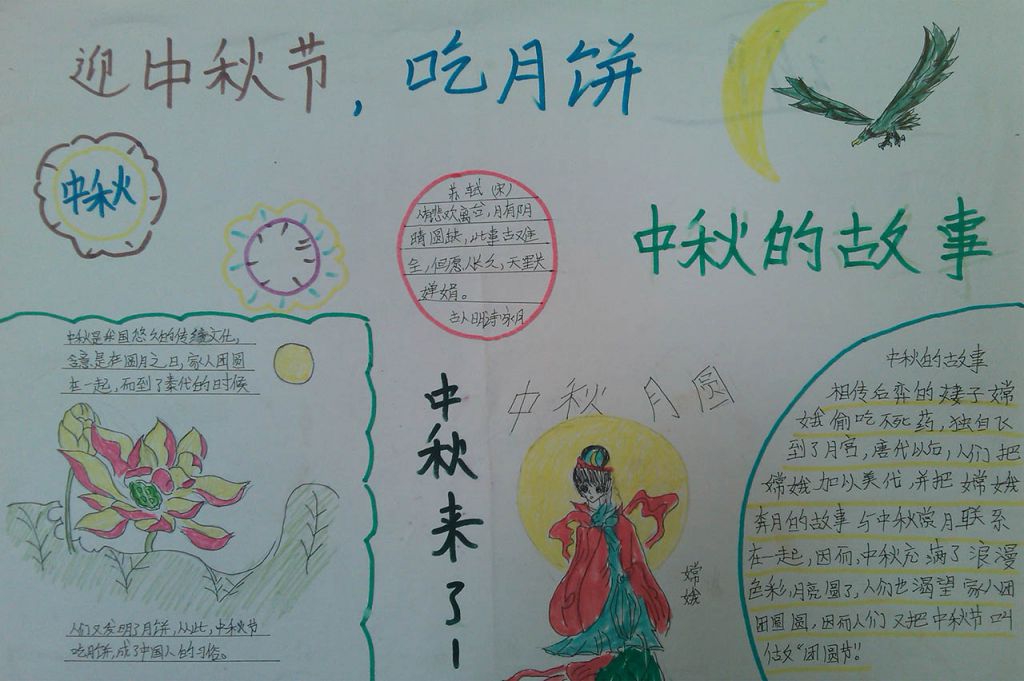 迎中秋节，吃月饼
中秋
苏轼（宋）
人有悲欢离合，月有阴
晴圆缺，此事古难
全，但愿人长久，天里共
婵娟。
古人明诗家月
中秋的故事
中秋是我国悠久的传统文化，
含意是在圆月之日，家人团圆
在一起，而到了秦代的日时候
人们又发明了月饼，从此，中秋节
吃月饼，成了中国人的习俗。
中秋来了！
中秋 月圆
嫦娥
中秋的故事
相传后弈的妻子嫦
娥偷吃不死药，独自飞
到了月宫，唐代以后，人们把
嫦娥加以美化，并把嫦娥
奔月的故事与中秋赏月联系
在一起，因而，中秋充满了浪漫
色彩，月亮圆了，人们也渴望家人团
团圆圆，因而人们又把中秋节叫
做“团圆节”。